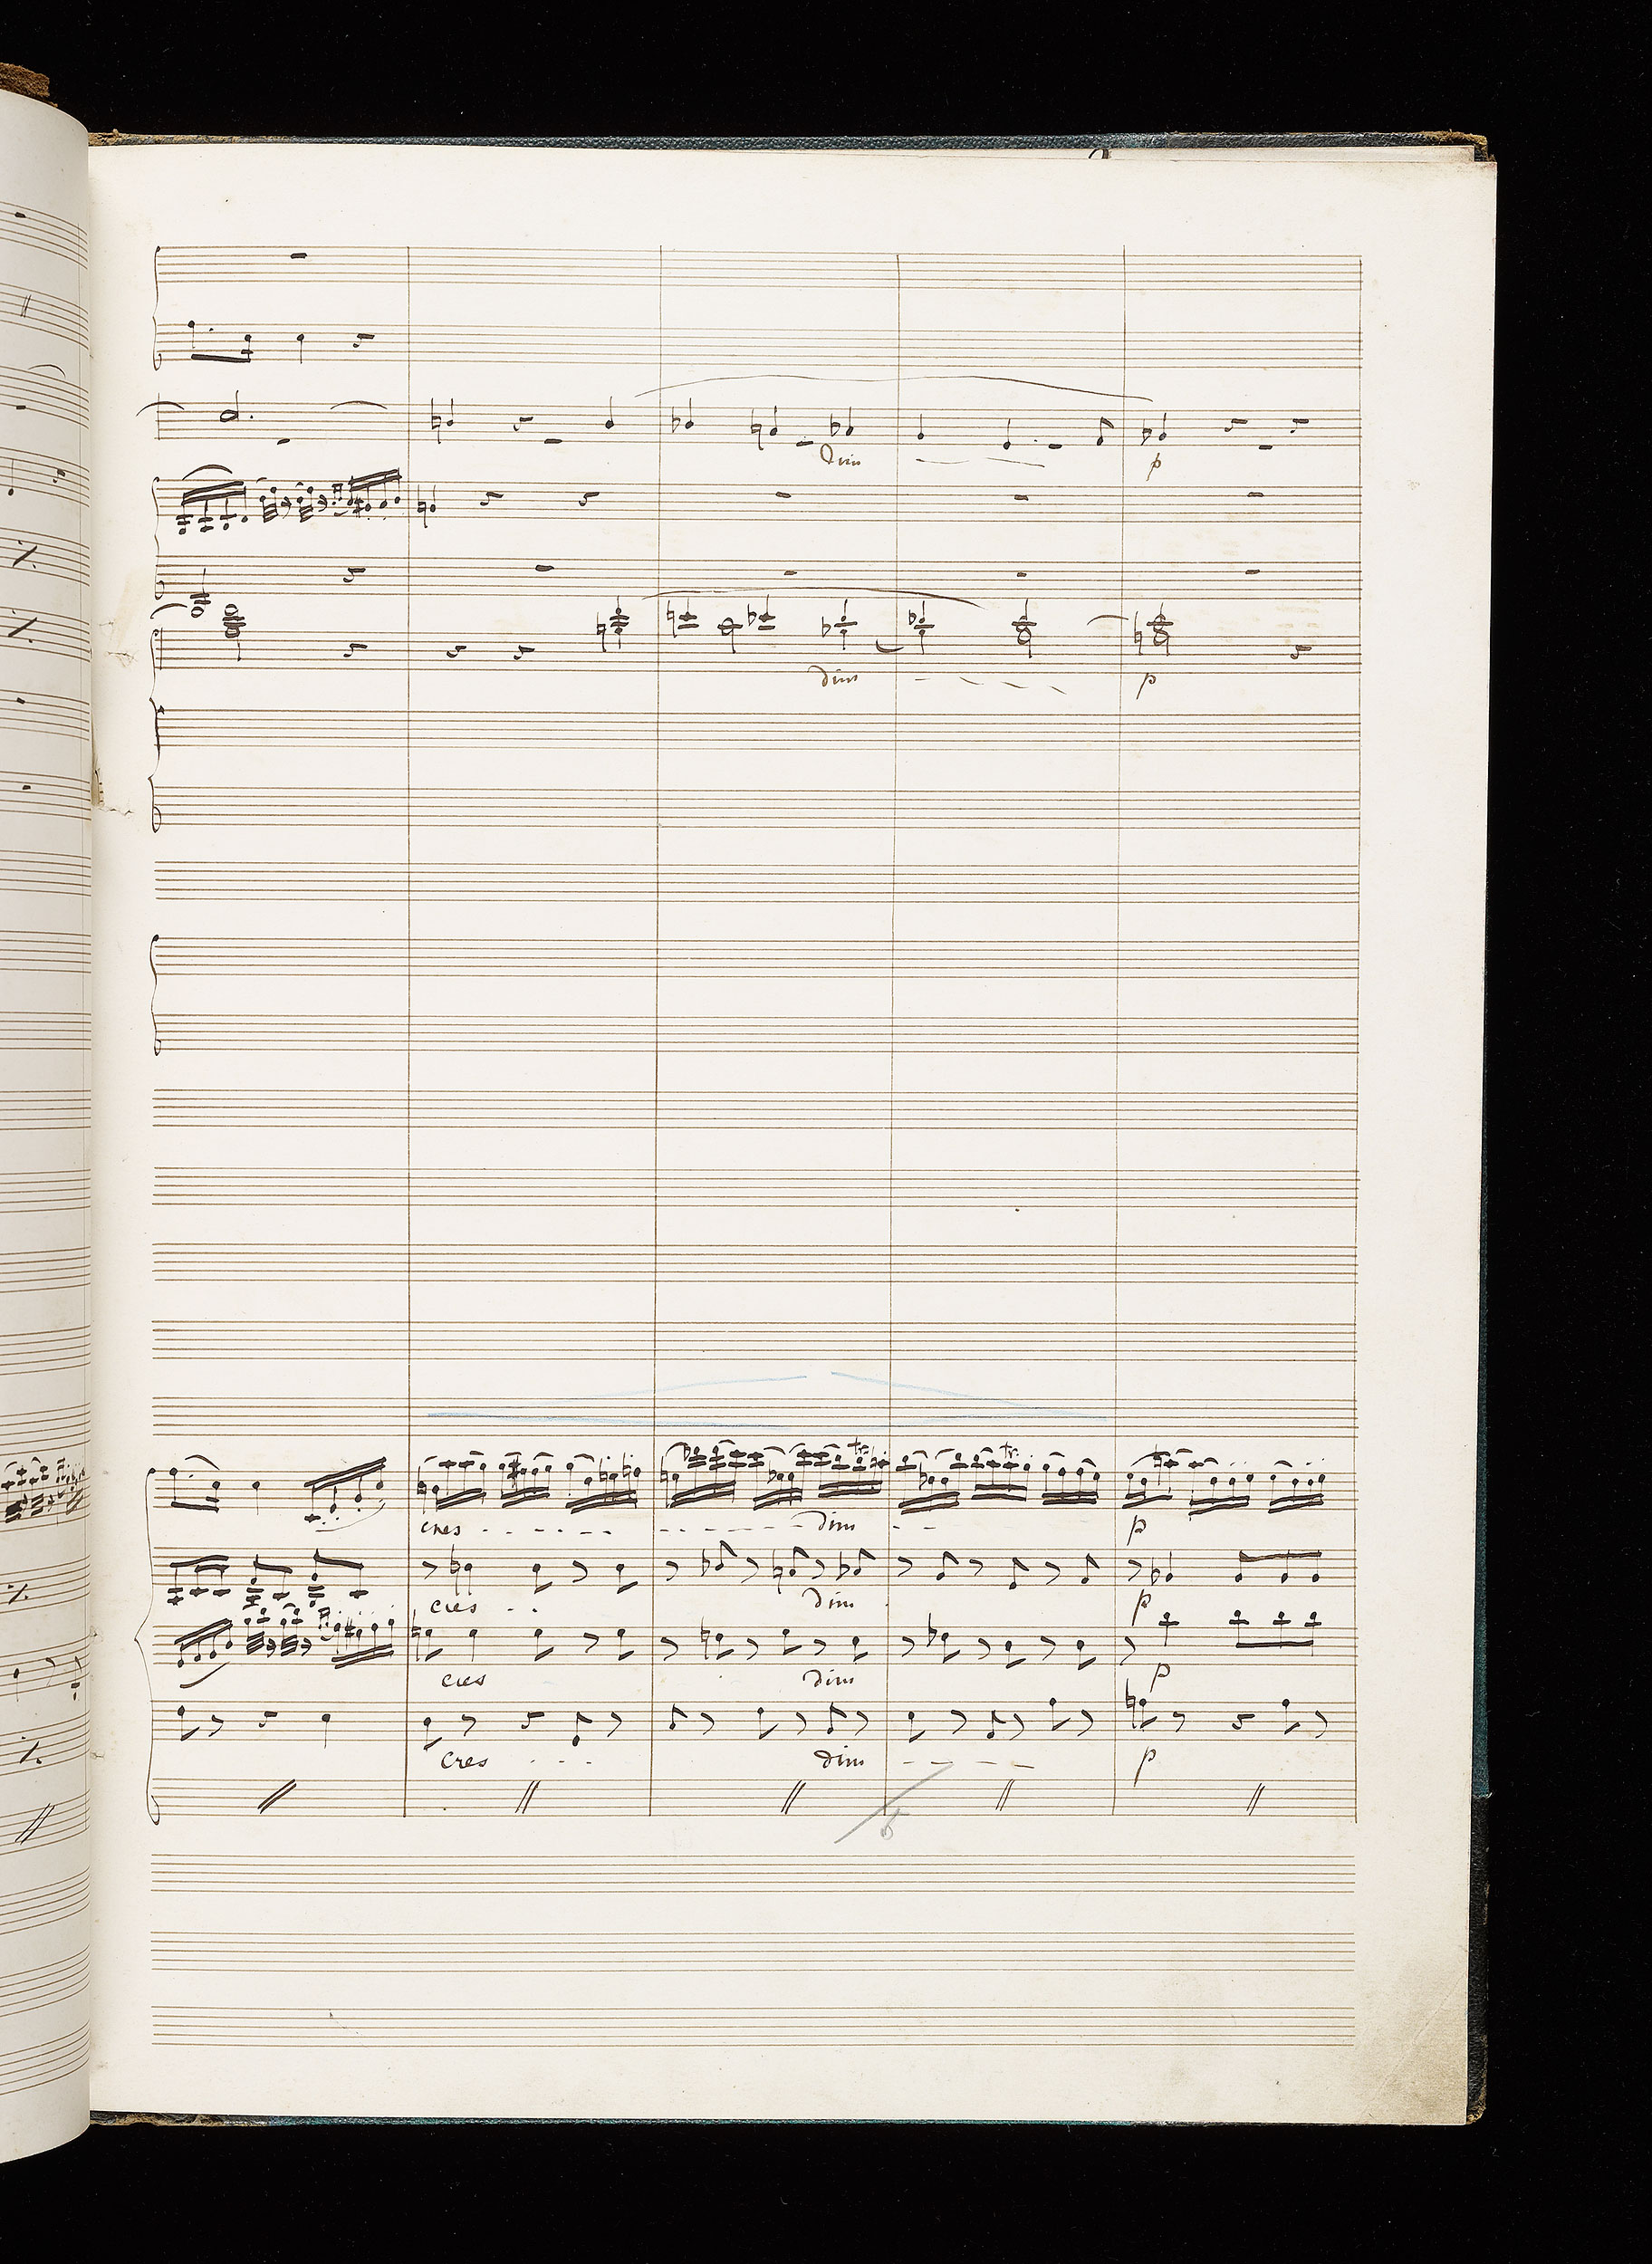 Dim
p
dim
p
cres
dim
p
cres
dim
p
cres
dim
p
cres
dim
p